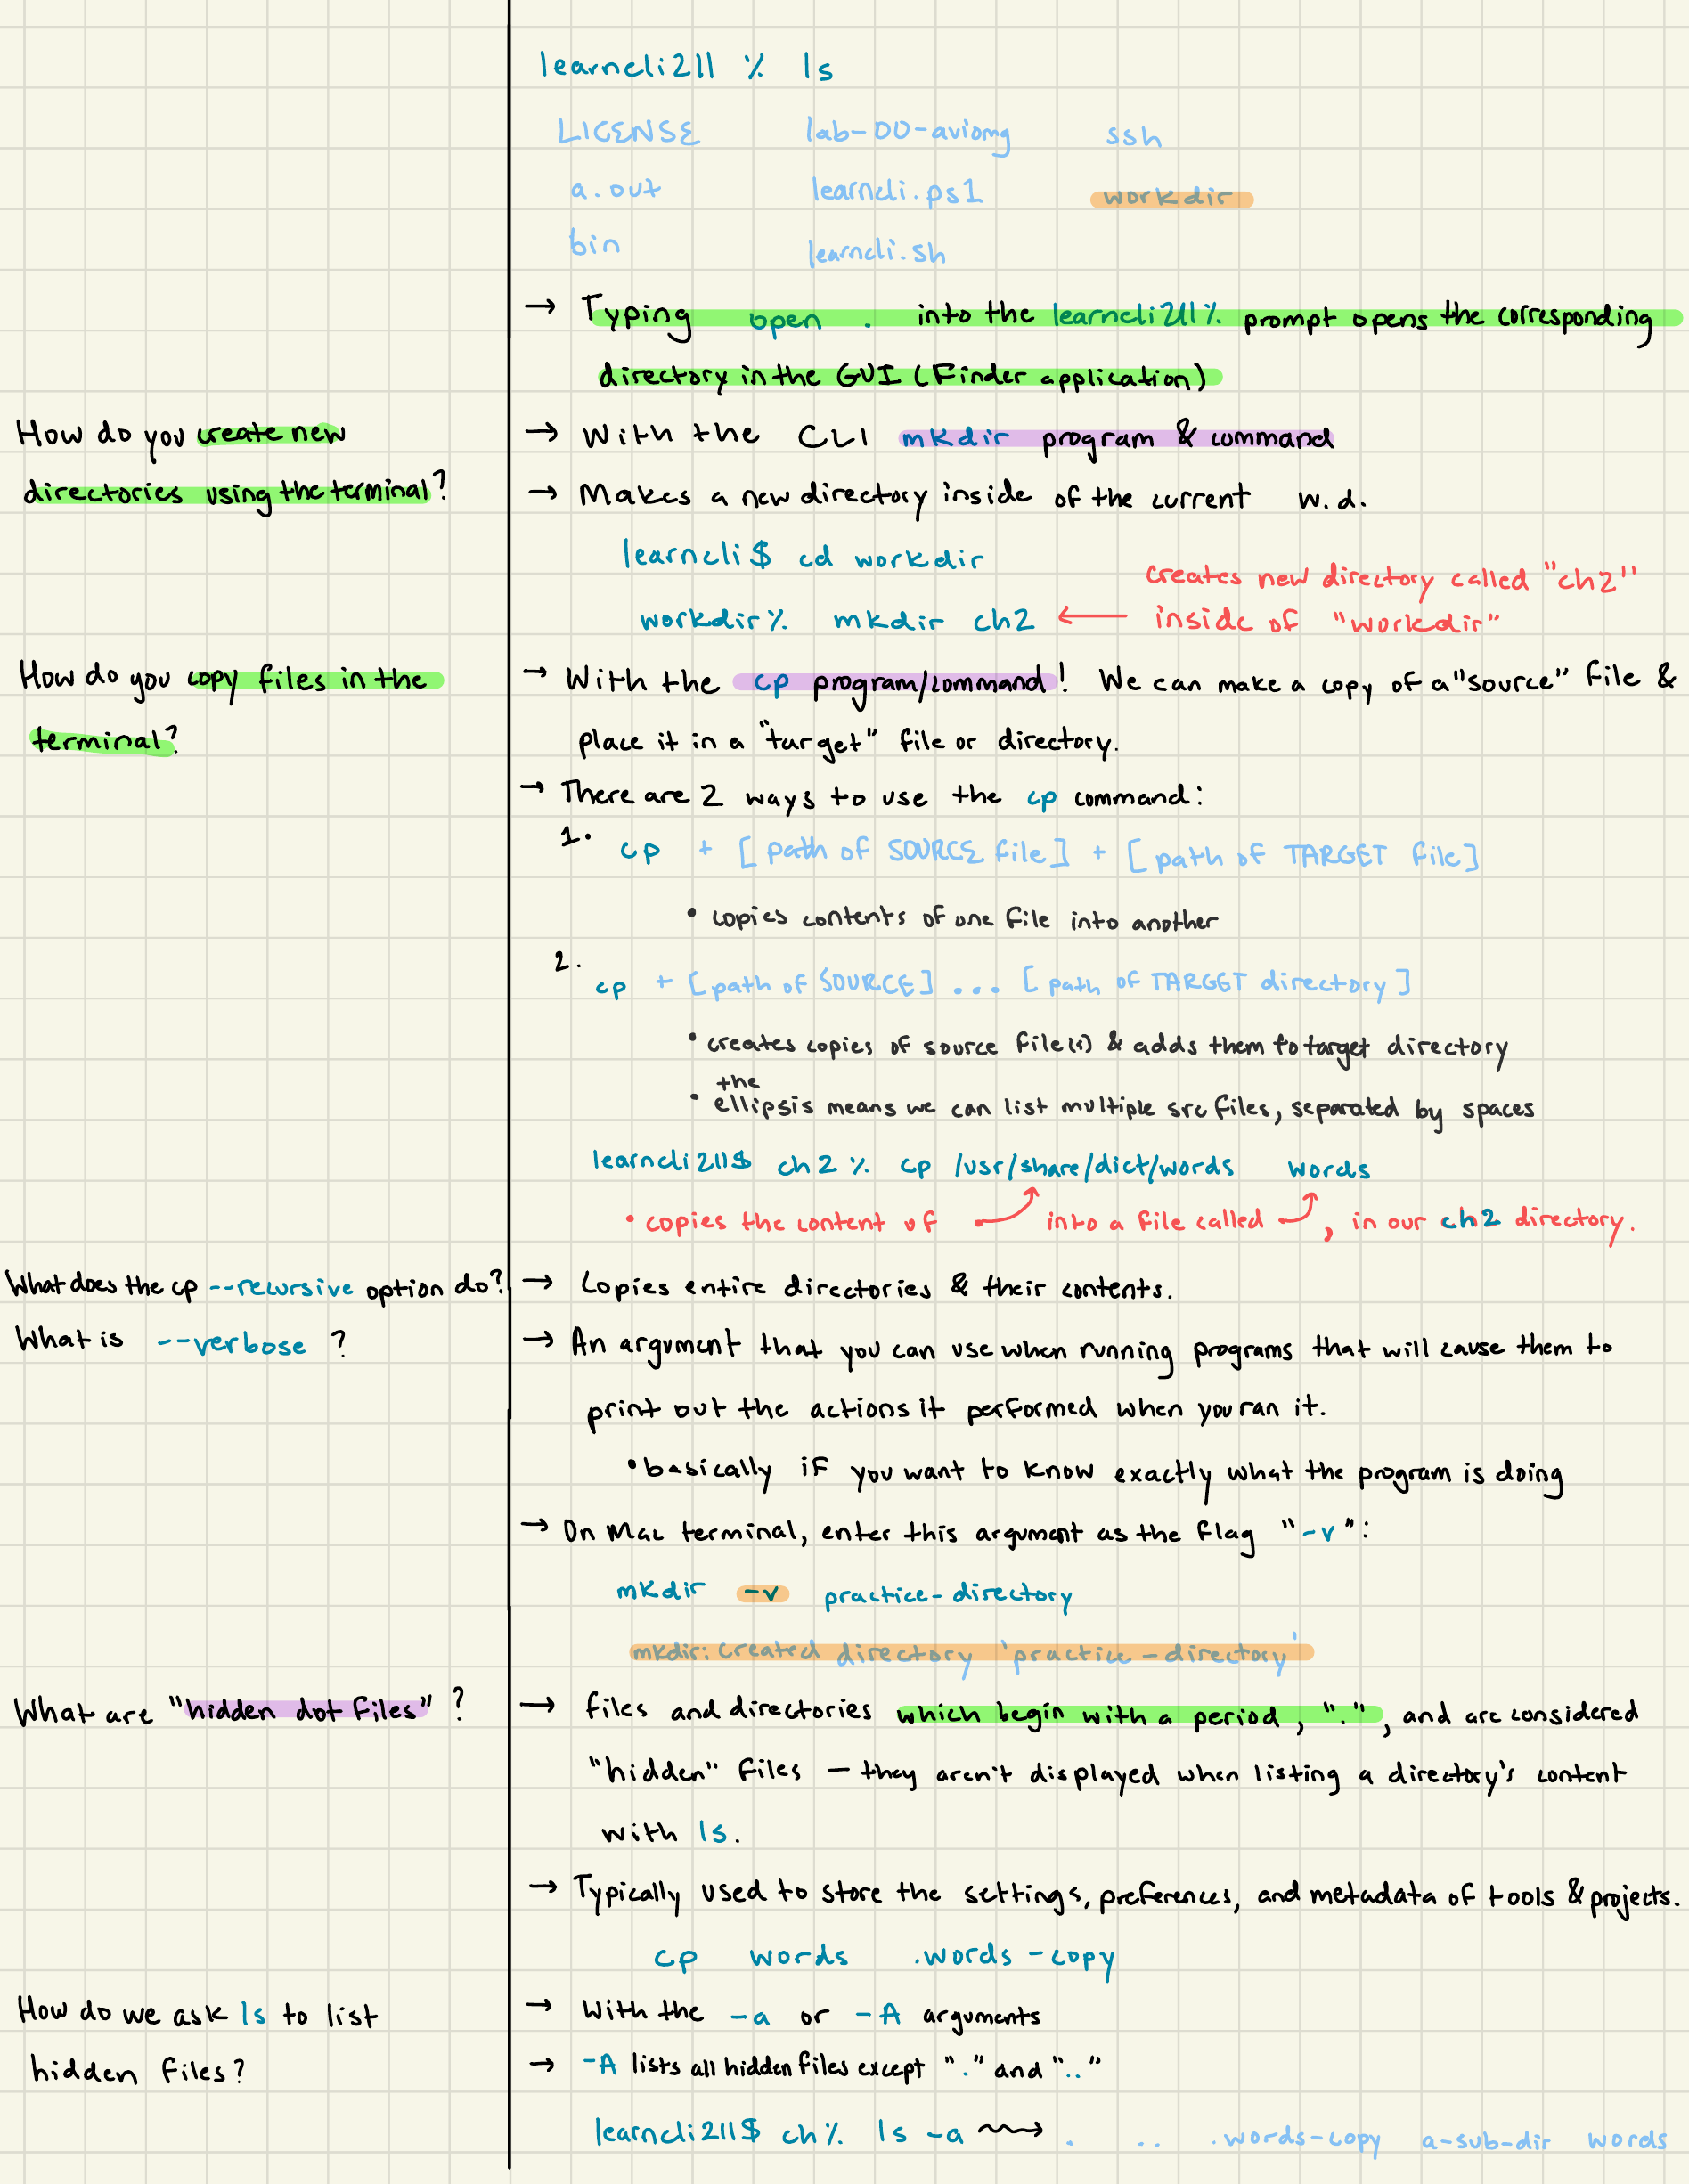 learncli211 % ls
LICENSE lab-00-aviomg ssh
a.out learncli.ps1 workdir
bin learncli.sh
→ Typing open . into the learncli211% prompt opens the corresponding
directory in the GUI (Finder application)
How do you create new
directories using the terminal?
→ With the CLI mkdir program & command
→ Makes a new directory inside of the current w.d.
learncli$ cd workdir
workdir% mkdir ch2 ← creates new directory called "ch2"
inside of "workdir"
How do you copy files in the
terminal?
→ With the cp program/command! We can make a copy of a "source" file &
place it in a "target" file or directory.
→ There are 2 ways to use the cp command:
1. cp + [path of SOURCE file] + [path of TARGET file]
• copies contents of one file into another
2. cp + [path of SOURCE] ... [path of TARGET directory]
• creates copies of source file(s) & adds them to target directory
• the ellipsis means we can list multiple src files, separated by spaces
learncli211$ ch2 % cp /usr/share/dict/words words
• copies the content of into a file called , in our ch2 directory.
What does the cp --recursive option do?
→ Copies entire directories & their contents.
What is --verbose ?
→ An argument that you can use when running programs that will cause them to
print out the actions it performed when you ran it.
• basically if you want to know exactly what the program is doing
→ On Mac terminal, enter this argument as the flag "-v":
mkdir -v practice-directory
mkdir: created directory 'practice-directory'
What are "hidden dot files" ?
→ files and directories which begin with a period, ".", and are considered
"hidden" files — they aren't displayed when listing a directory's content
with ls.
→ Typically used to store the settings, preferences, and metadata of tools & projects.
cp words .words-copy
How do we ask ls to list
hidden files?
→ With the -a or -A arguments
→ -A lists all hidden files except "." and ".."
learncli211$ ch% ls -a → . .. .words-copy a-sub-dir words